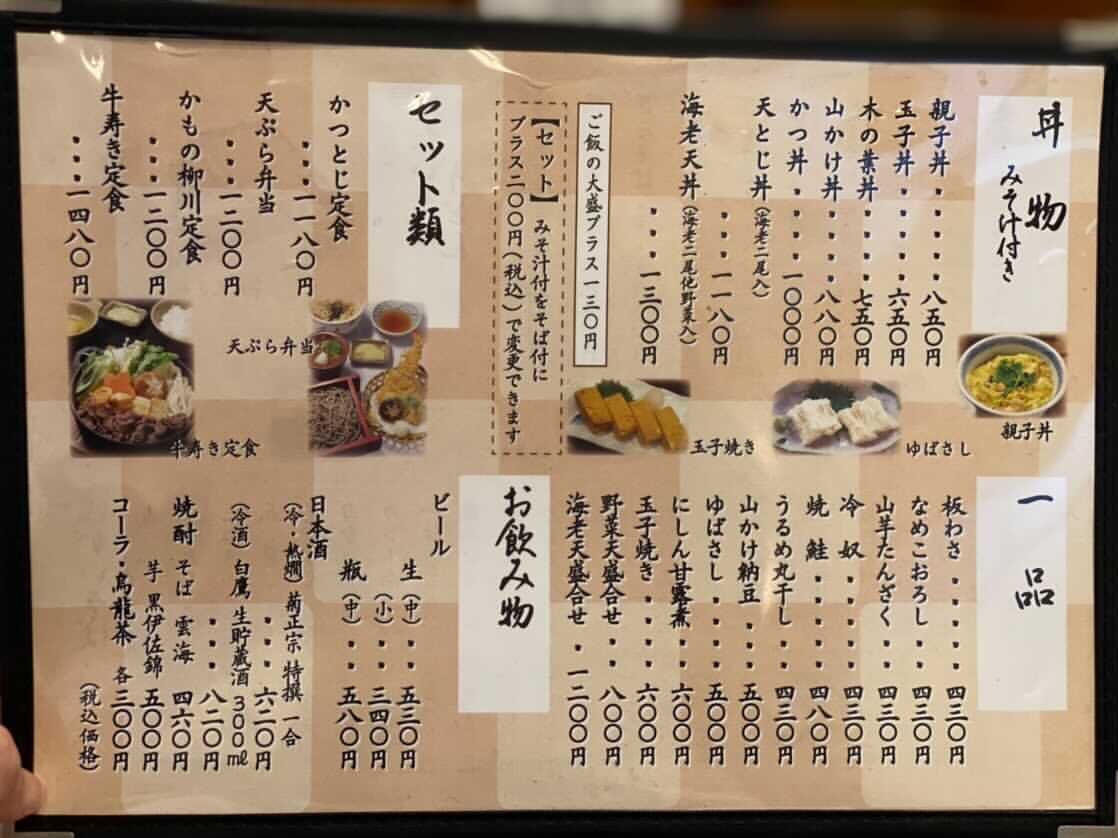 丼物 みそ汁付き
親子丼・・・・八五〇円
玉子丼・・・・六五〇円
木の葉丼・・・七五〇円
山かけ丼・・・八八〇円
かつ丼・・・一〇〇〇円
天とじ丼(海老二尾入)
・・・一一八〇円
海老天丼(海老二尾他野菜入)
・・・一三〇〇円
ご飯の大盛プラス一三〇円
【セット】みそ汁付をそば付に
プラス二〇〇円(税込)で変更できます
セット類
かつとじ定食
・・・一一八〇円
天ぷら弁当
・・・一二〇〇円
かもの柳川定食
・・・一二〇〇円
牛寿き定食
・・・一四八〇円
親子丼
ゆばさし
玉子焼き
天ぷら弁当
牛寿き定食
一品
板わさ・・・・四三〇円
なめこおろし・・・四三〇円
山芋たんざく・・・四三〇円
冷奴・・・・四三〇円
焼鮭・・・・四八〇円
うるめ丸干し・・・四三〇円
山かけ納豆・・・五〇〇円
ゆばさし・・・・五〇〇円
にしん甘露煮・・・六〇〇円
玉子焼き・・・・六〇〇円
野菜天盛合せ・・八〇〇円
海老天盛合せ・一二〇〇円
お飲み物
ビール
生(中)・・五三〇円
(小)・・三四〇円
瓶(中)・・五八〇円
日本酒
(冷・熱燗)菊正宗 特撰 一合
・・・六二〇円
(冷酒)白鷹 生貯蔵酒 300㎖
・・・八二〇円
焼酎 そば 雲海 四六〇円
芋 黒伊佐錦 五〇〇円
コーラ・烏龍茶 各三〇〇円
(税込価格)